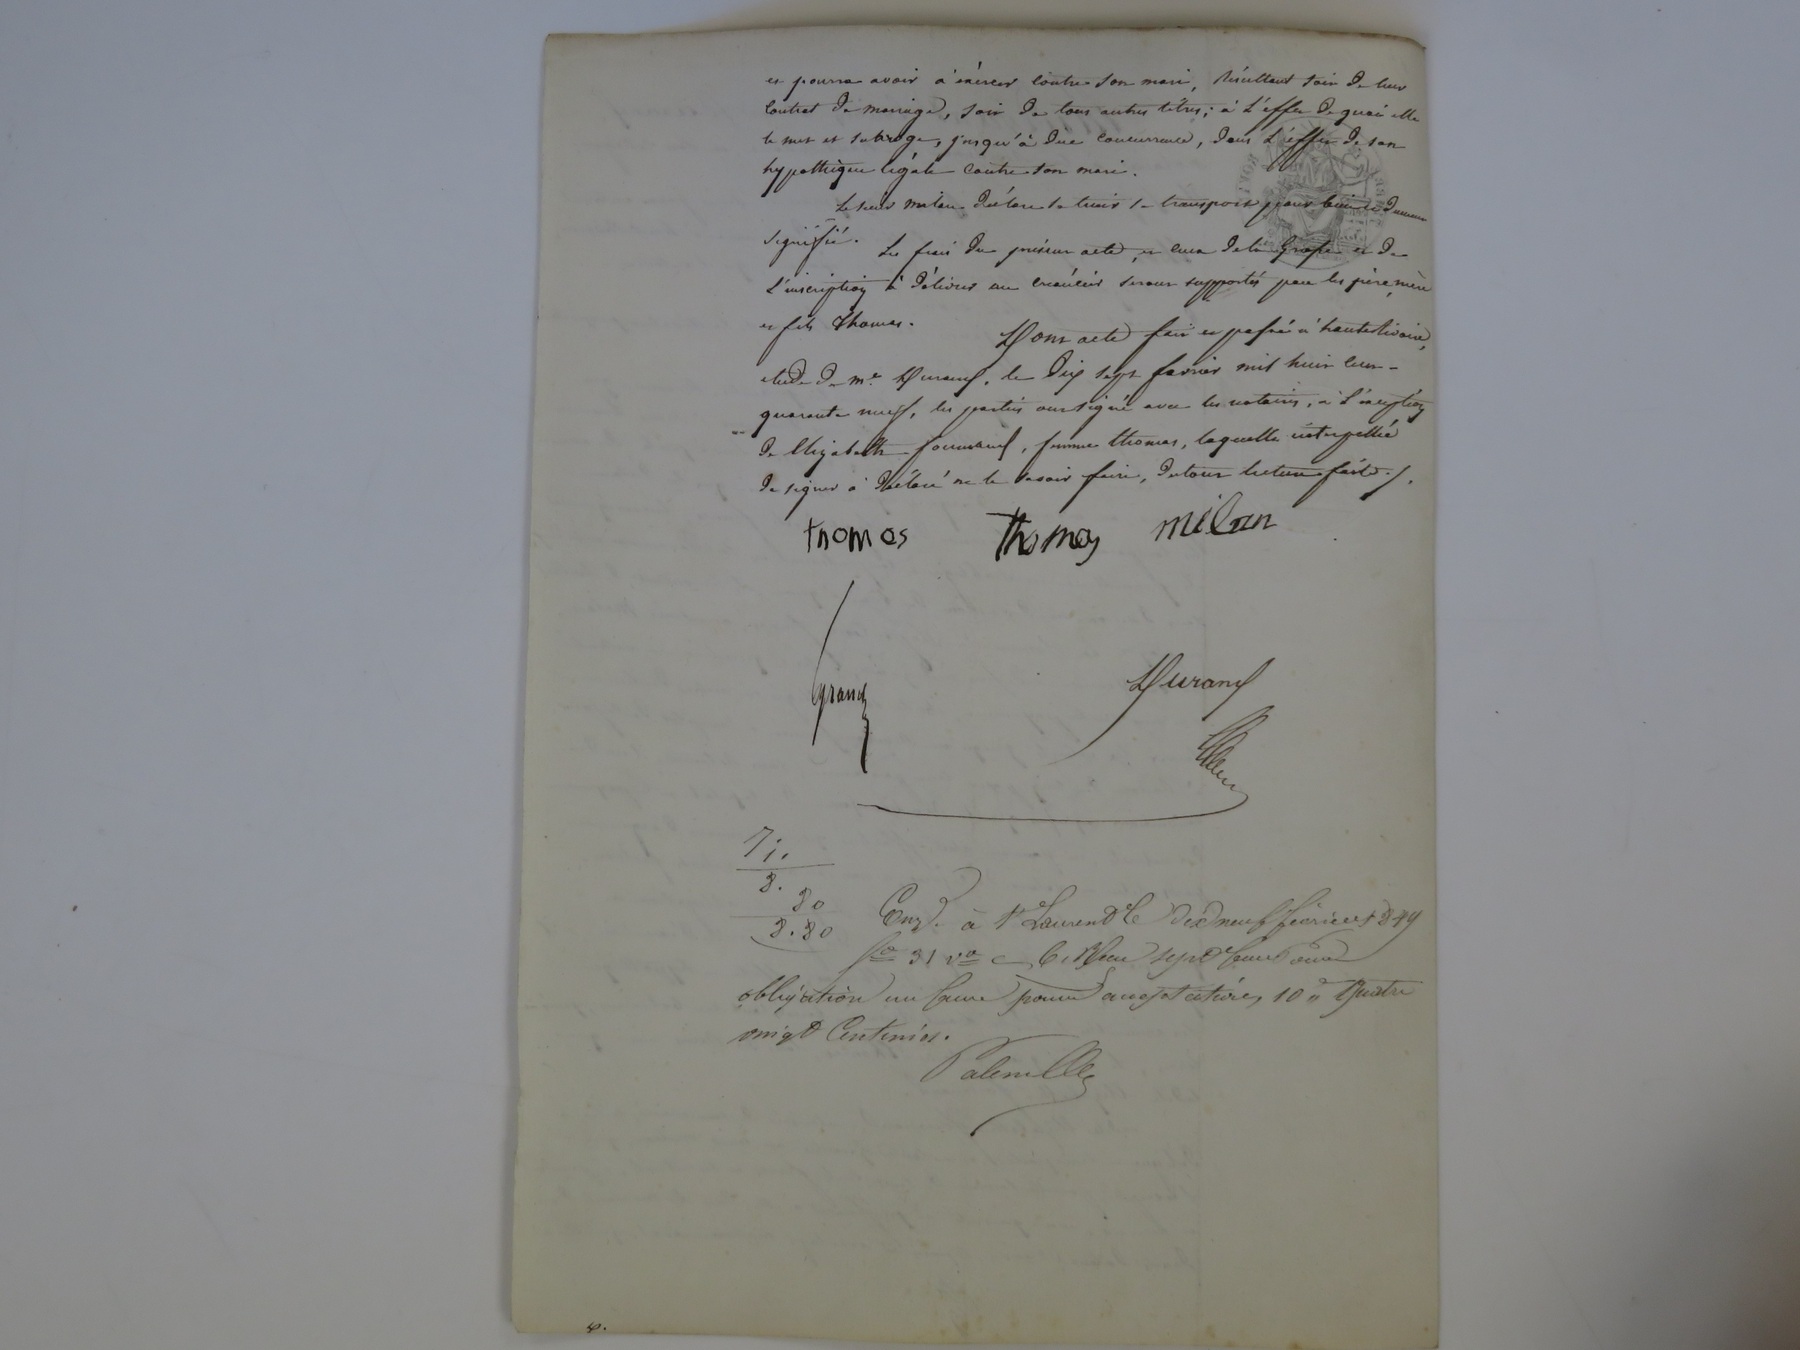 et pourra avoir à exercer contre son mari, résultant soit de leur
contrat de mariage, soit de tous autres titres; à l'effet de quoi elle
le met et subroge, jusqu'à due concurrence, dans l'effet de son
hypothèque légale contre son mari.
Le sieur Milan déclare se tenir le transport pour bien et duement
signifié.
Les frais du présent acte, et ceux de la Grosse et de
l'inscription à délivrer au créancier seront supportés par les père, mère
et fils Thomas.
Dont acte fait et passé à hauterivoire,
étude de me Durand, le dix sept février mil huit cent-
quarante neuf, les parties ont signé avec les notaires, à l'exception
de Elizabeth fournand, femme thomas, laquelle interpellée
de signer a déclaré ne le savoir faire, du tout lecture faite./.
thomas Thomas milan
grand
Durand
7 1.
8.
80
8.80
Enr. à St Laurent le dix neuf février 1849
fo 31 vo c
obligation un franc pour 10e quatre
vingt Centimes.